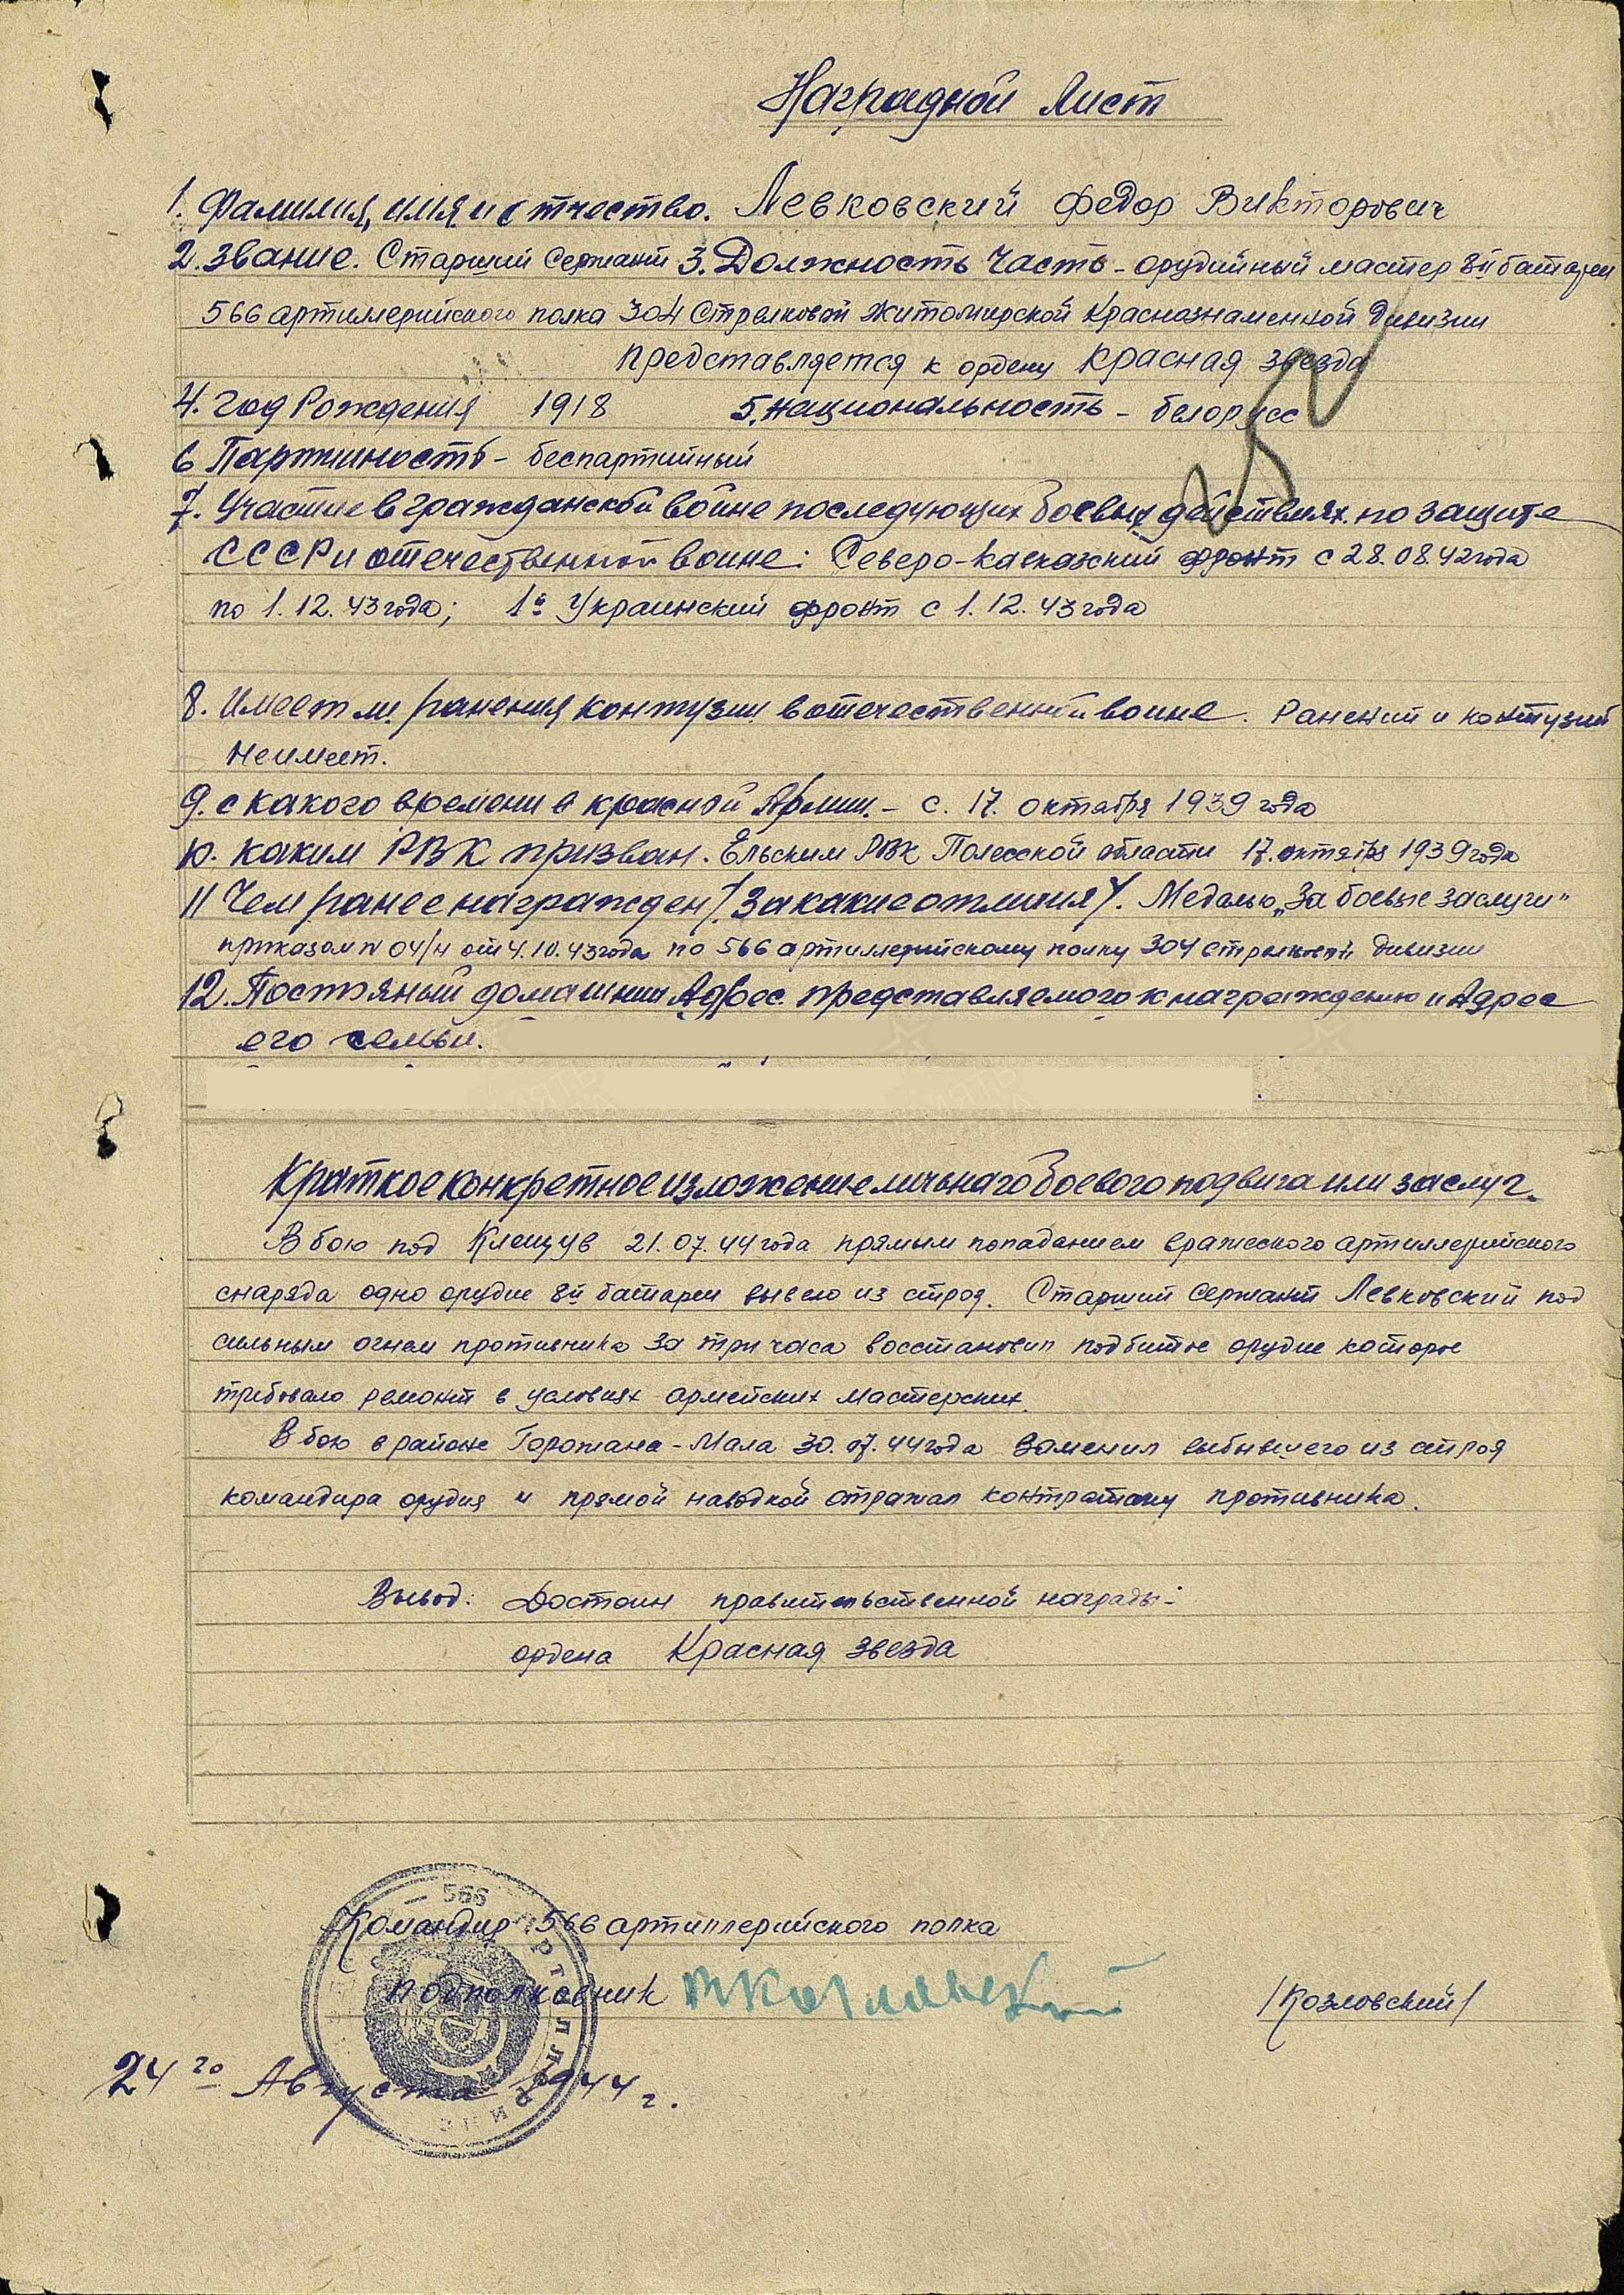 Наградной лист
1. Фамилия, имя и отчество. Левковский Федор Викторович
2. Звание. Старший Сержант 3. Должность Часть - орудийный мастер 8й батареи
566 артиллерийского полка 304 Стрелковой Житомирской Краснознаменной Дивизии
представляется к ордену Красная звезда
4. Год Рождения 1918 5. Национальность - белорусс
6 Партийность - беспартийный
7. Участие в гражданской войне последующих боевых действиях по защите
СССР и отечественной войне: Северо-Кавказский фронт с 28.08.42 года
по 1.12.43 года; 1й Украинский фронт с 1.12.43 года
8. Имеет ли ранения контузии в отечественной войне. Ранений и контузий
не имеет.
9. с какого времени в красной Армии. - с. 17. октября 1939 года
10. каким РВК призван. Ельским РВК Полесской области 17. октября 1939 года
11 Чем ранее награжден /за какие отличия/. Медалью „За боевые заслуги"
приказом N 04/н от 4.10.43 года по 566 артиллерийскому полку 304 стрелковой дивизии
12. Постояный домашний Адрес представляемого к награждению и Адрес
его семьи.
Краткое конкретное изложение личьнаго боевого подвига или заслуг.
В бою под Клещув 21.07.44 года прямым попаданием вражеского артиллерийского
снаряда одно орудие 8й батареи вывело из строя. Старший сержант Левковский под
сильным огнем противника за три часа восстановил подбитое орудие которое
требовало ремонт в условиях армейских мастерских.
В бою в районе Горожана-Мала 30.07.44 года заменил выбывшего из строя
командира орудия и прямой наводкой отражал контратаку противника.
Вывод: Достоин правительственной награды-
ордена Красная звезда
566
Командир 566 артиллерийского полка
подполковник /Козловский/
24го Августа 1944 г.